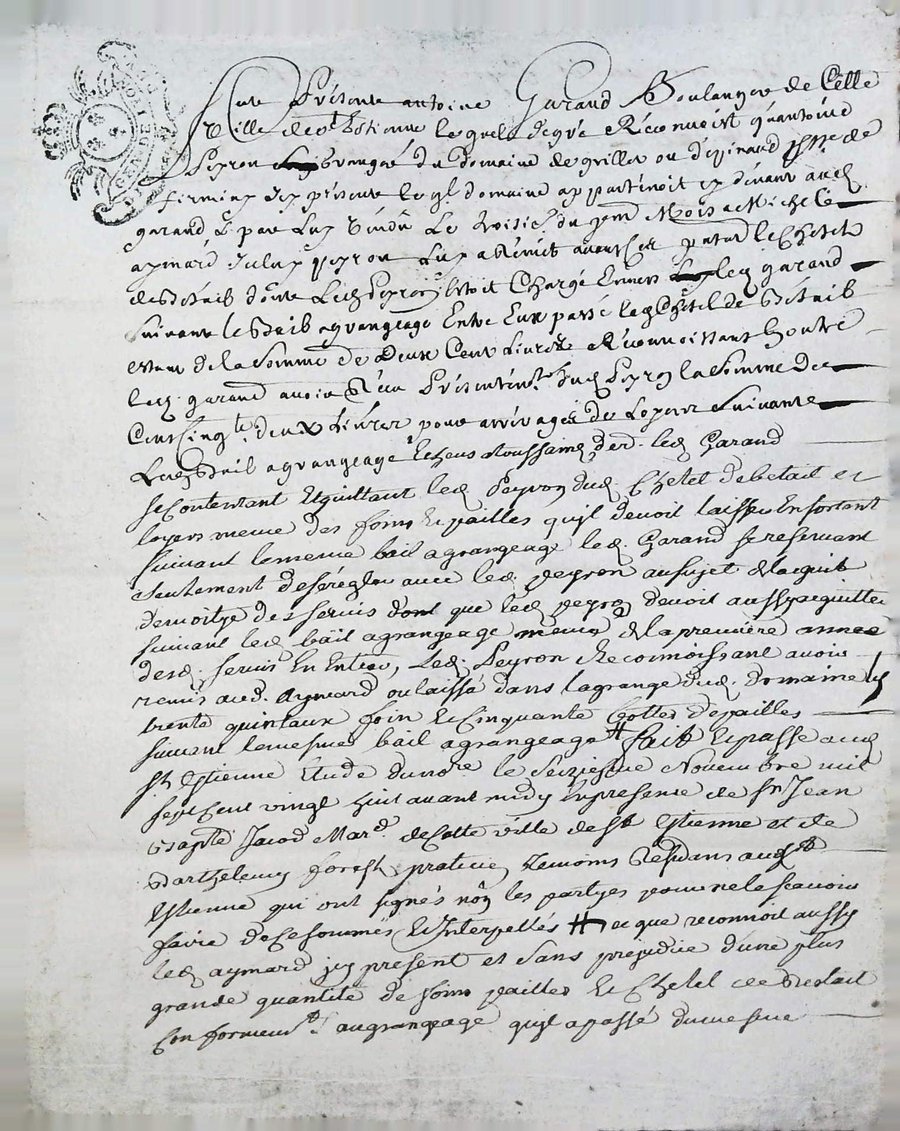 GEN DE LYON
fut présent antoine Garand Boulanger de Cette
Ville de st Estienne lequel de gré Reconnoist qu'antoine
Peyron grangé du Domaine de grillet ou d'epinaud psse de
firminy icy présent le ql domaine appartenoit cy devant aud
garand & par luy Vendu Le troisie. du pnt Mois a Michel
aymard Iceluy peyron luy a Remis avant cet le Chetel
de Bétail dont Led Peyron étoit Chargé Envers led garand
suivant le Bail agrangeage Entre Eux passé led Chetel de Bétail
estant de la somme de Deux Cent Livres Reconnoissant En outre
led. garand avoir Reçu Présentemt. dud Peyron la somme de
Cent Cinqte. deux Livres pour arrérages de Loyers suivant
Led Bail agrangeage Echeus a toussaint der. led Garand
se contentant Et quittant led Peyron dud. Chetel de betail et
loyers meme des foins Et pailles qu'il devoit laisser En sortant
suivant le meme bail agrangeage led. Garand se reservant
seulement de se régler avec led. peyron au sujet de la quit
de moitye des servis que led peyron devoit aussy acquitter
suivant led bail agrangeage meme de la premiere année
desd. servis En Entier, Led. Peyron Reconnoissant avoir
remis aud. Aymard ou laissé dans la grange dud. domaine
trente quintaux foin Et Cinquante Bottes de pailles
suivant le mesme bail agrangeage # fait Et passé aud
st Estienne Etude du nore le seizieme Novembre mil
sept cent vingt huit avant midy En présence de sr Jean
Bapte Jacod Mard. de cette ville de st Estienne et de
Barthelemy forest praticien temoins Residans aud st
Estienne qui ont signés nōn les partyes pour ne le scavoir
faire de ce sommés Et Interpellés # ce que reconnoit aussy
led aymard icy present et sans prejudice d'une plus
grande quantité de foins pailles Et Chetel de Betail
Conformemt. au grangeage qu'il a passé du mesme